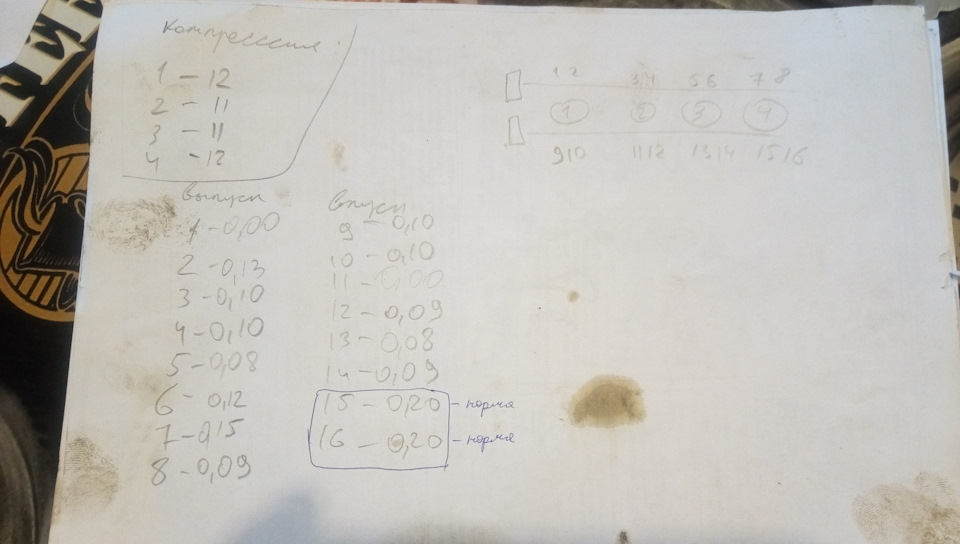 Компрессия.
1 - 12
2 - 11
3 - 11
4 - 12
Выпуск
1 - 0,00
2 - 0,13
3 - 0,10
4 - 0,10
5 - 0,08
6 - 0,12
7 - 0,15
8 - 0,09
Впуск
9 - 0,10
10 - 0,10
11 - 0,00
12 - 0,09
13 - 0,08
14 - 0,09
15 - 0,20 - норма
16 - 0,20 - норма
1 2 3,4 5 6 7 8
1 2 3 4
9 10 11 12 13 14 15 16